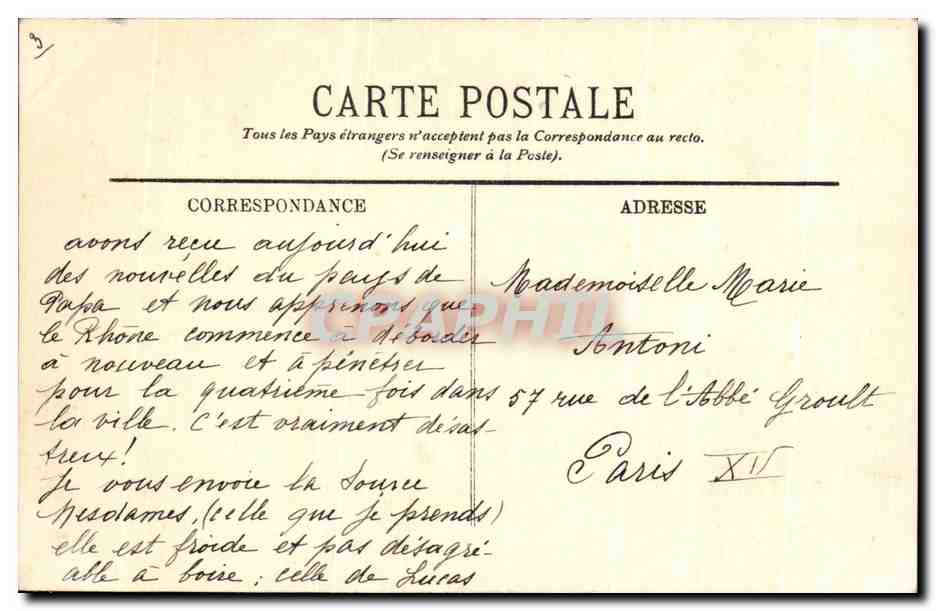 3
CARTE POSTALE
Tous les Pays étrangers n'acceptent pas la Correspondance au recto.
(Se renseigner à la Poste).
CORRESPONDANCE
avons reçu aujourd'hui
des nouvelles du pays de
Papa et nous apprenons que
le Rhône commence à déborder
à nouveau et à pénétrer
pour la quatrième fois dans
la ville. C'est vraiment désas-
treux!
Je vous envoie la Source
Mesdames, (celle que je prends)
elle est froide et pas désagré-
able à boire; celle de Lucas
ADRESSE
Mademoiselle Marie
Antoni
57 rue de l'Abbé Groult
Paris XV
CPAPHIL